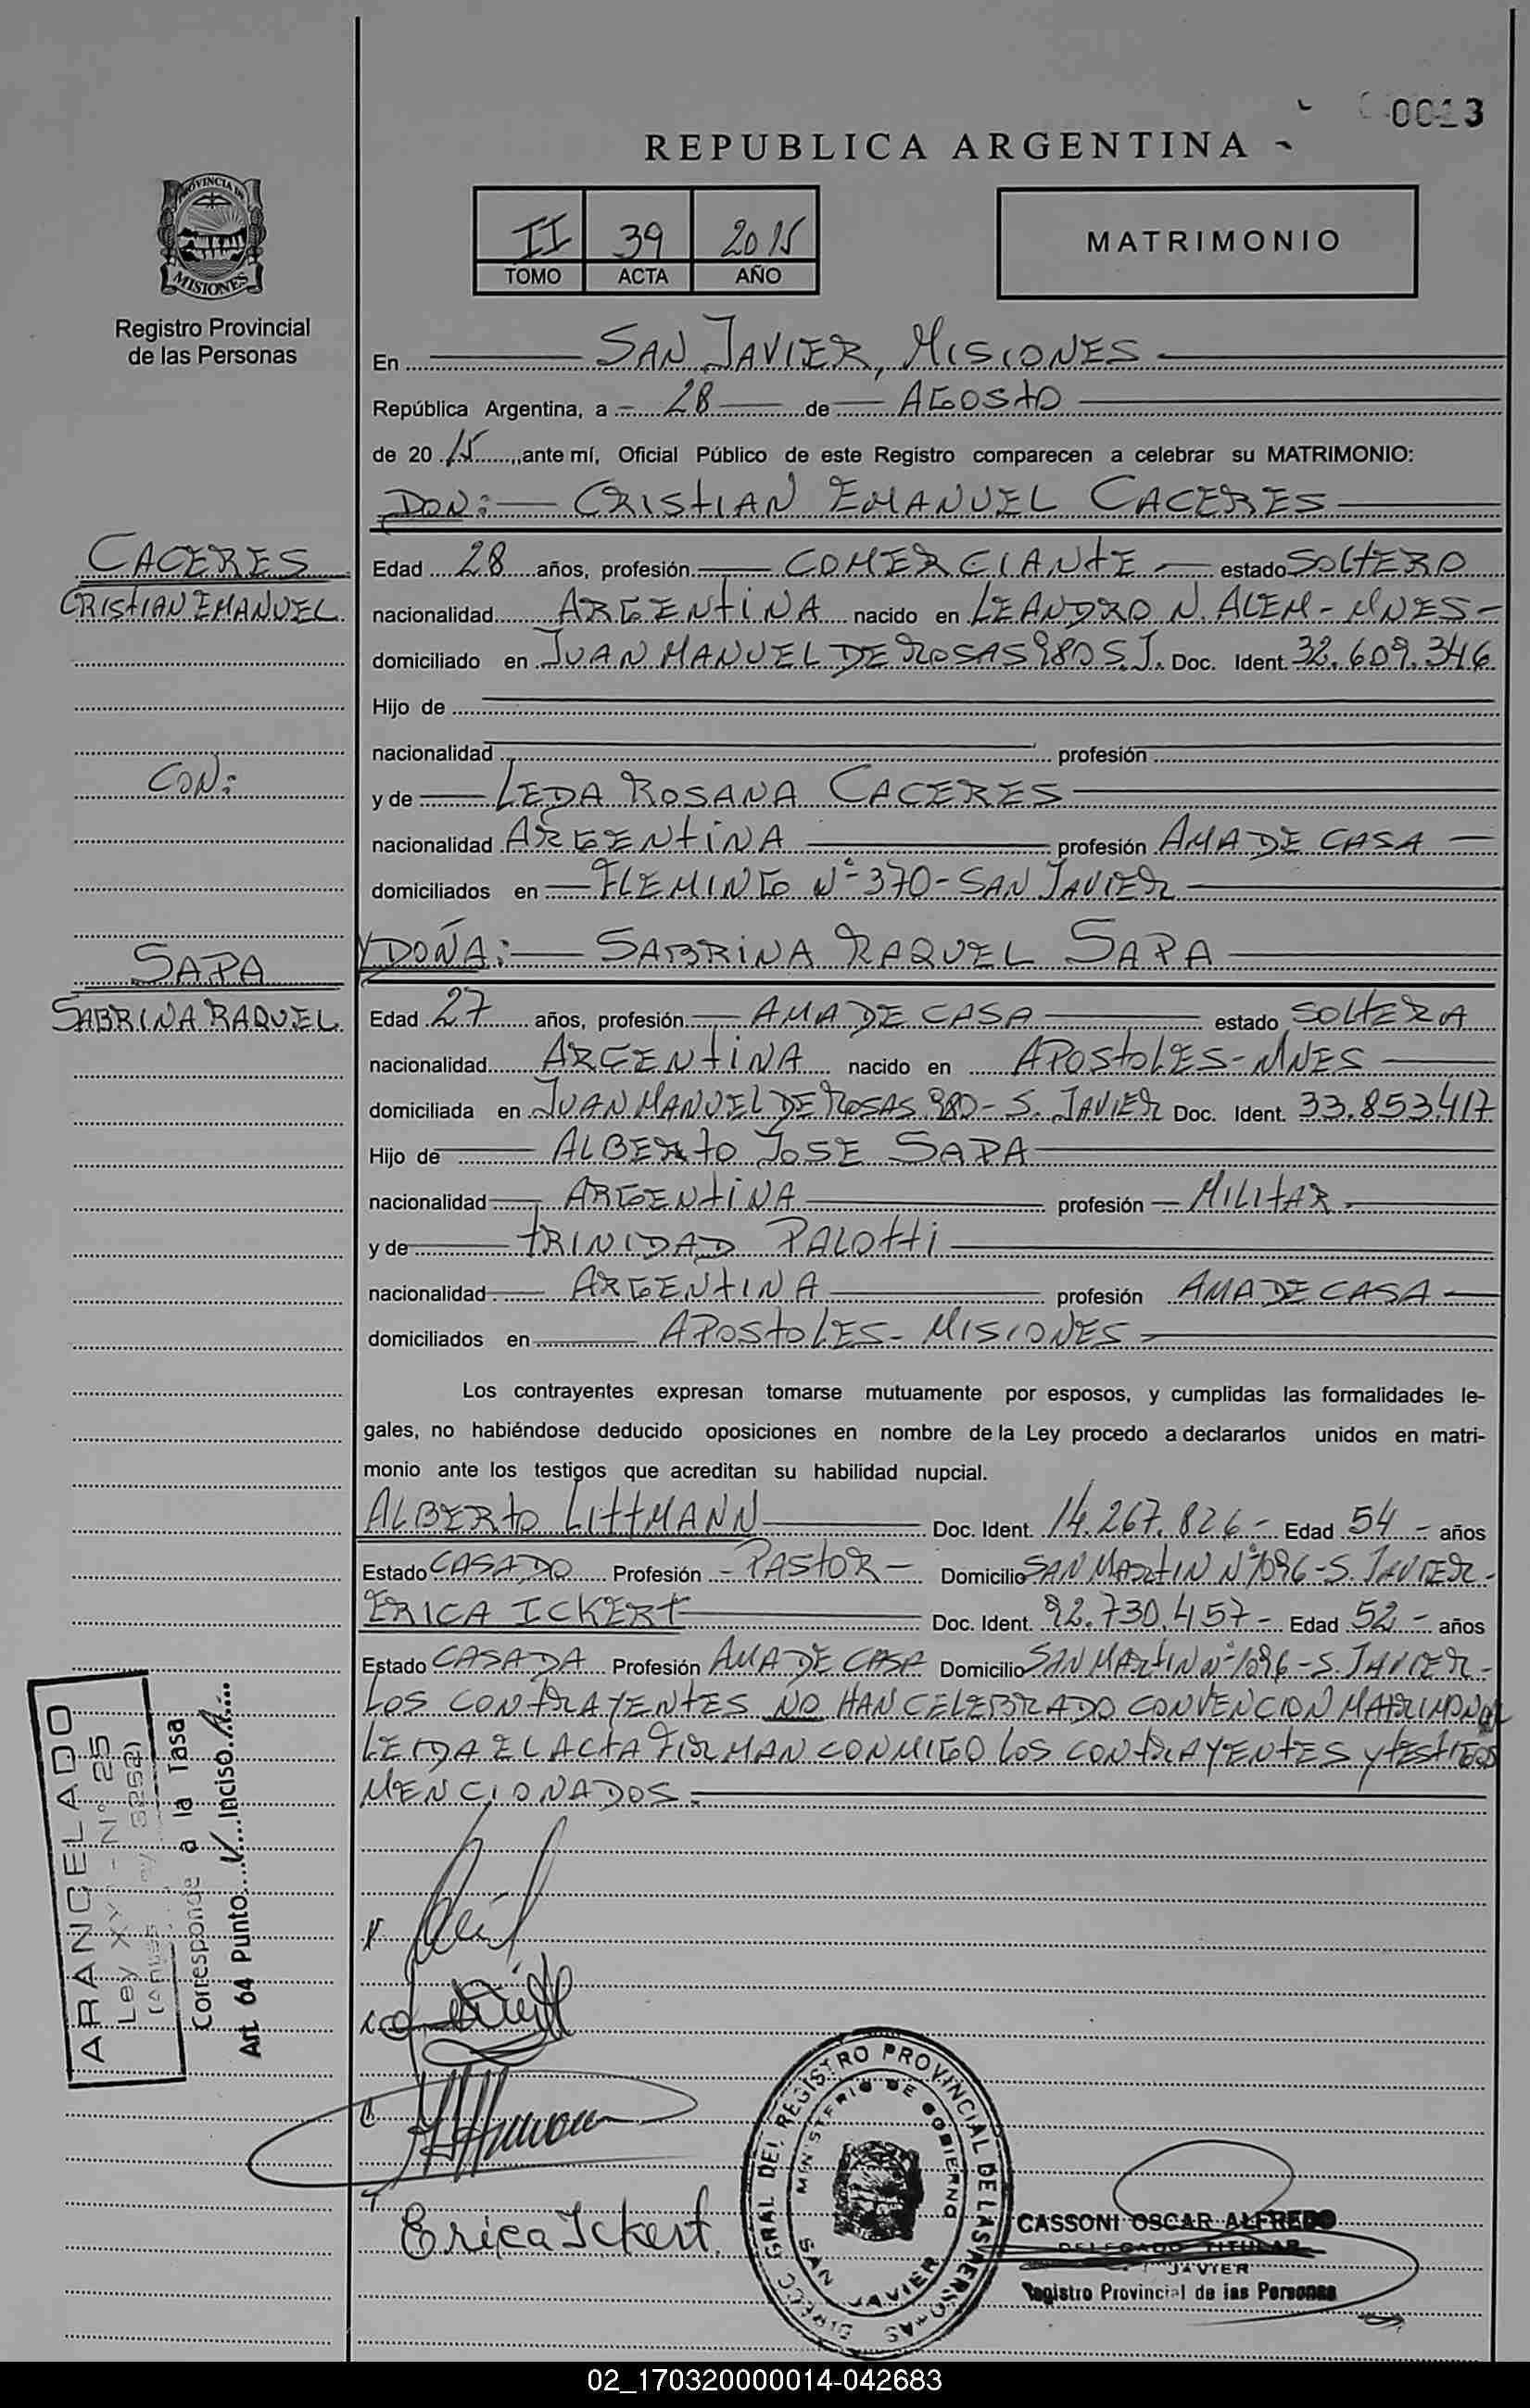 0013
REPUBLICA ARGENTINA
PROVINCIA DE
MISIONES
Registro Provincial
de las Personas
II 39 2015
TOMO ACTA AÑO
MATRIMONIO
En SAN JAVIER, MISIONES
República Argentina, a 28 de AGOSTO
de 20 15 ,ante mí, Oficial Público de este Registro comparecen a celebrar su MATRIMONIO:
DON: CRISTIAN EMANUEL CACERES
CACERES
CRISTIAN EMANUEL
Edad 28 años, profesión COMERCIANTE estado SOLTERO
nacionalidad ARGENTINA nacido en LEANDRO N. ALEM-MNES-
domiciliado en JUAN MANUEL DE ROSAS 980 S.J. Doc. Ident. 32.609.346
Hijo de
nacionalidad profesión
CON:
y de LEDA ROSANA CACERES
nacionalidad ARGENTINA profesión AMA DE CASA
domiciliados en FLEMING Nº 370-SAN JAVIER
SAPA
SABRINA RAQUEL
Y DOÑA: SABRINA RAQUEL SAPA
Edad 27 años, profesión AMA DE CASA estado SOLTERA
nacionalidad ARGENTINA nacido en APOSTOLES-MNES
domiciliada en JUAN MANUEL DE ROSAS 980-S. JAVIER Doc. Ident. 33.853.417
Hijo de ALBERTO JOSE SAPA
nacionalidad ARGENTINA profesión MILITAR
y de TRINIDAD PALOTTI
nacionalidad ARGENTINA profesión AMA DE CASA
domiciliados en APOSTOLES-MISIONES
Los contrayentes expresan tomarse mutuamente por esposos, y cumplidas las formalidades le-
gales, no habiéndose deducido oposiciones en nombre de la Ley procedo a declararlos unidos en matri-
monio ante los testigos que acreditan su habilidad nupcial.
ALBERTO LITTMANN Doc. Ident. 14.267.826- Edad 54 años
Estado CASADO Profesión PASTOR Domicilio SAN MARTIN Nº 1096-S. JAVIER-
ERICA ICKERT Doc. Ident. 92.730.457- Edad 52 años
Estado CASADA Profesión AMA DE CASA Domicilio SAN MARTIN Nº 1096-S. JAVIER-
LOS CONTRAYENTES NO HAN CELEBRADO CONVENCION MATRIMONIAL
LEIDA EL ACTA FIRMAN CONMIGO LOS CONTRAYENTES Y TESTIGOS
MENCIONADOS.
ARANCELADO
Ley XVI - Nº 25
3252)
Corresponde a la Tasa
Art. 64 Punto V Inciso
Erica Ickert
GRAL DEL REGISTRO PROVINCIAL DE LAS PERSONAS
MINISTERIO DE GOBIERNO
SAN JAVIER
CASSONI OSCAR ALFREDO
DELEGADO TITULAR
JAVIER
Registro Provincial de las Personas
02_170320000014-042683